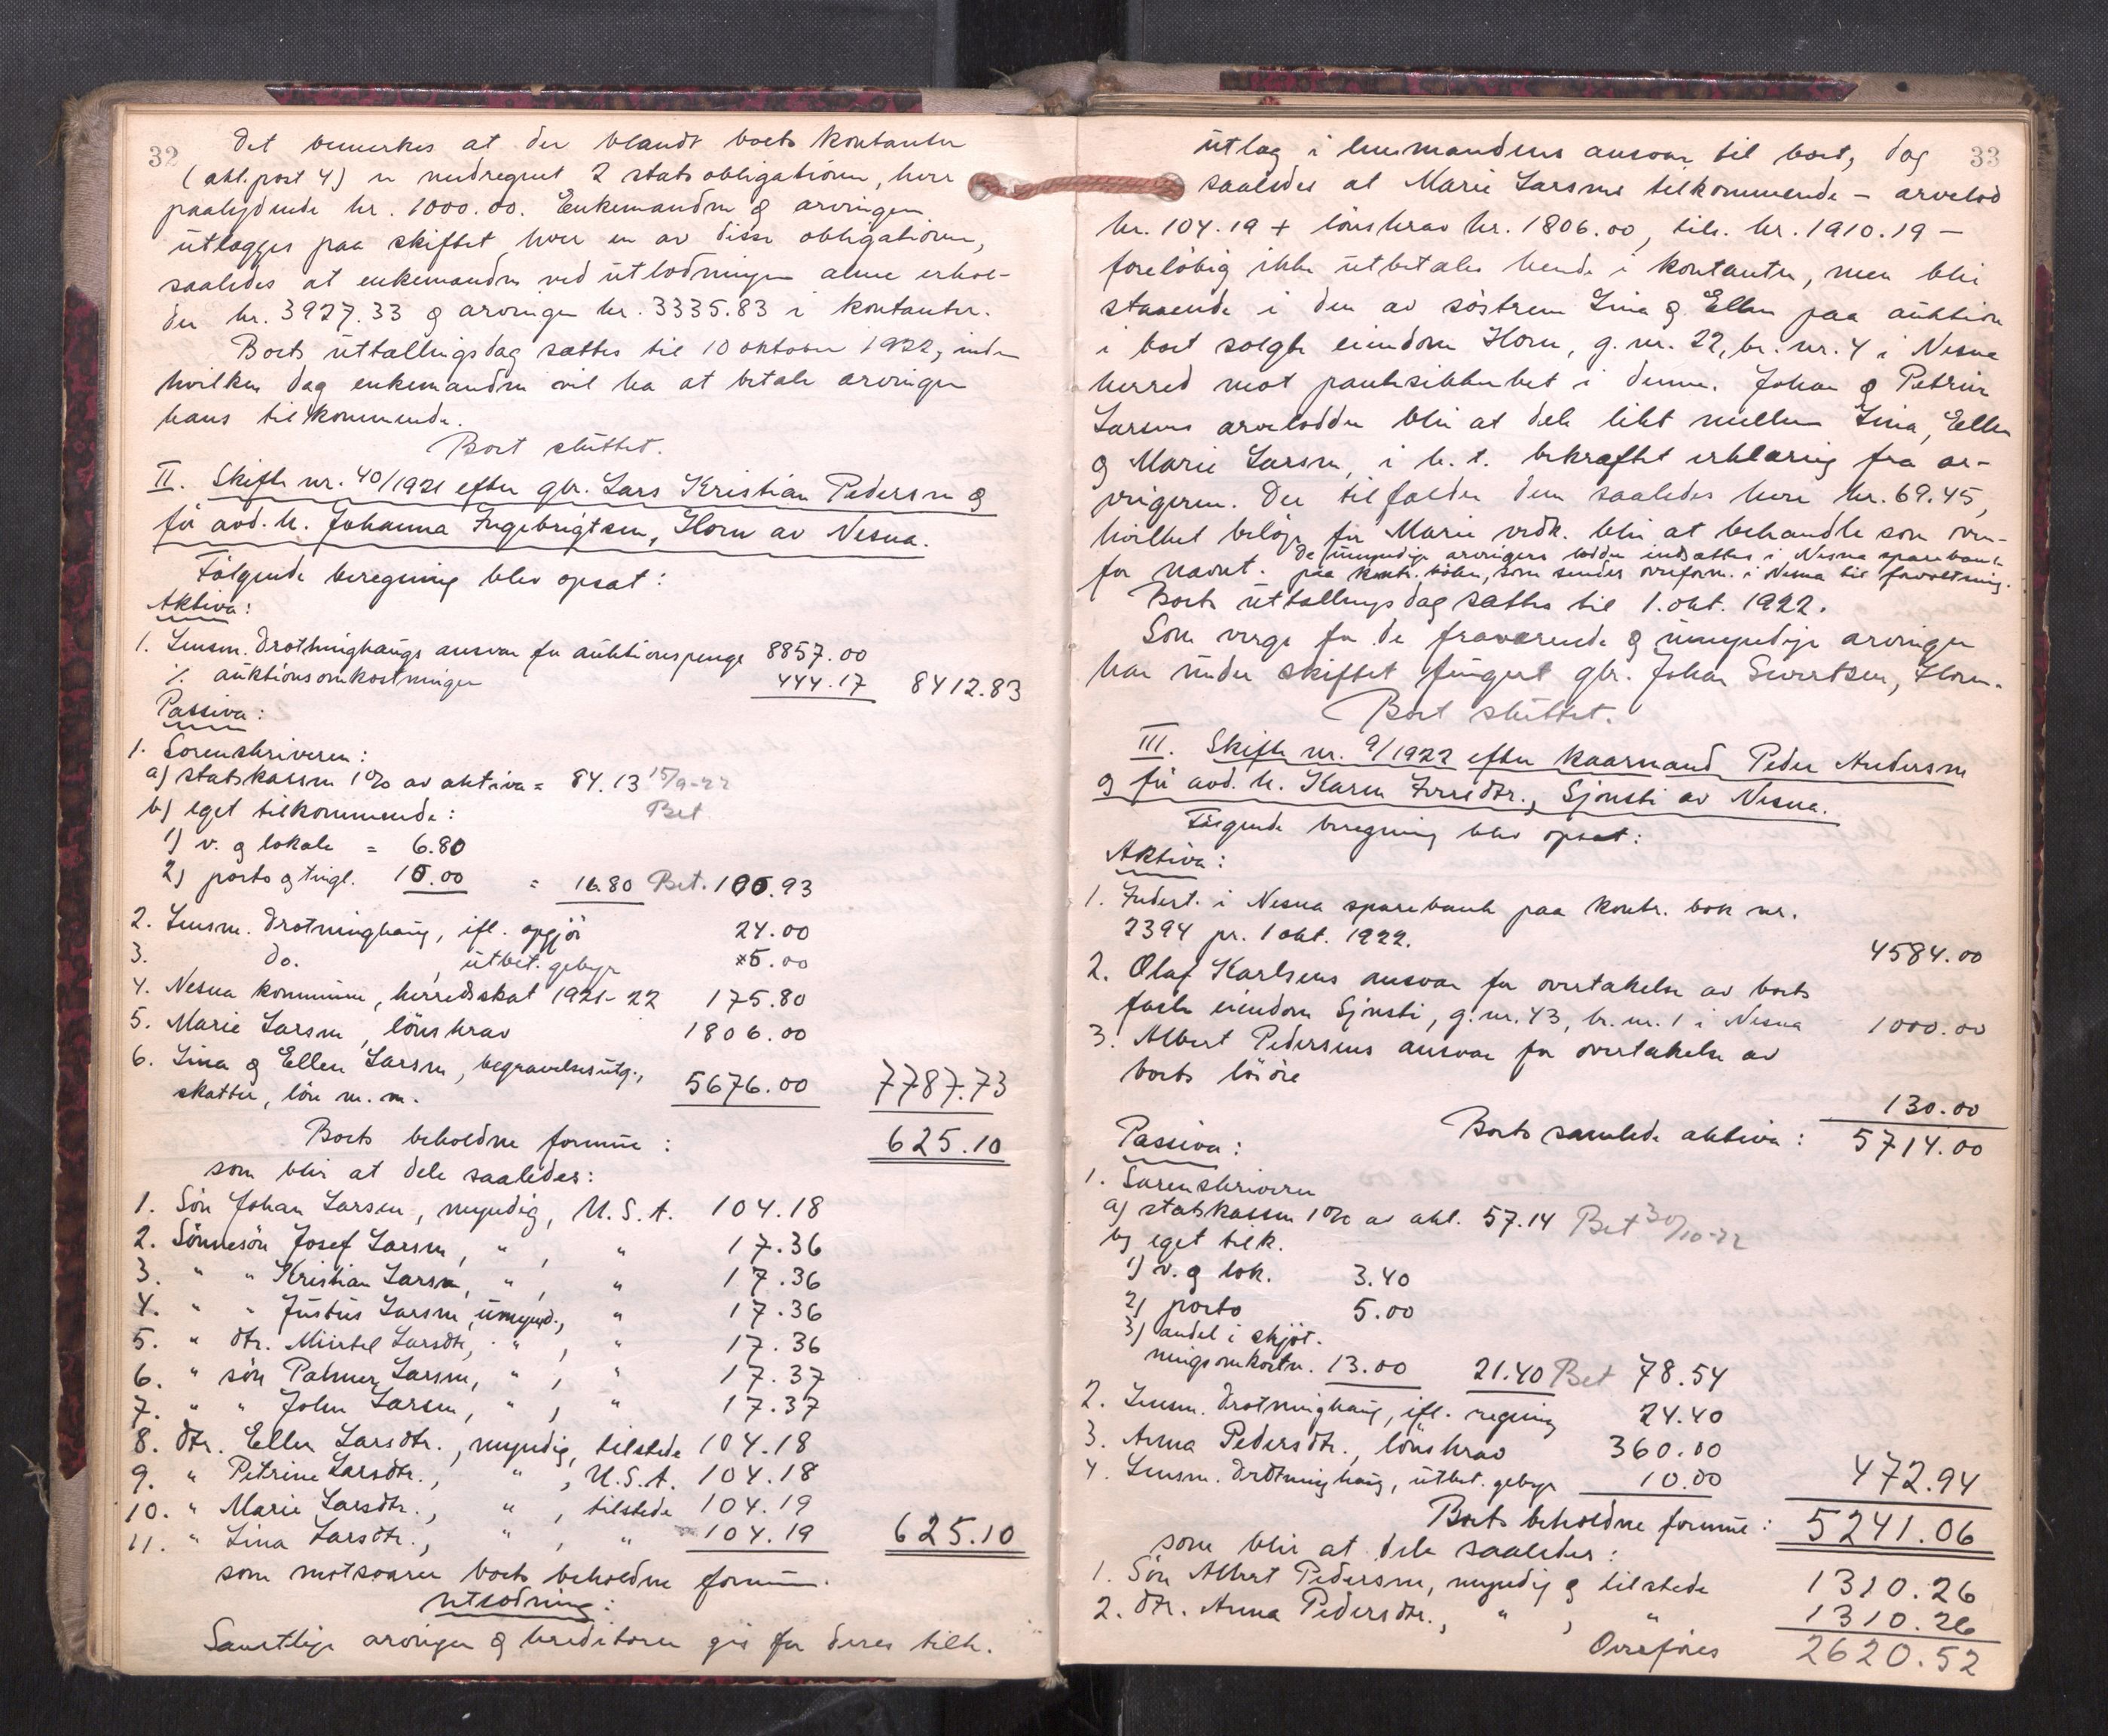 32
Det bemerkes at der blandt boets kontanter
(akt. post 4) er medregnet 2 statsobligationer, hver
paalydende kr. 1000.00. Enkemanden & arvingen
utlægges paa skiftet hver en av disse obligationer,
saaledes at enkemanden ved utlodningen alene erhol-
der kr. 3927.33 & arvingen kr. 3335.83 i kontanter.
Boets uttællingsdag sættes til 10 oktober 1922, inden
hvilken dag enkemanden vil ha at betale arvingen
hans tilkommende.
Boet sluttet.
II. Skifte nr. 40/1921 efter gbr. Lars Kristian Pedersen &
før avd. h. Johanna Ingebrigtsen, Horn av Nesna.
Følgende beregning blev opsat:
Aktiva:
1. Lensm. Drotninghaugs ansvar for auktionspenge 8857.00
% auktionsomkostninger 444.17 8412.83
Passiva:
1. Sorenskriveren:
a) statskassen 1% av aktiva = 84.13 15/9-22
b) eget tilkommende: Bet.
1) v. & lokale = 6.80
2) porto & tingl. 10.00 = 16.80 Bet. 100.93
2. Lensm. Drotninghaug, ifl. opgjør 24.00
3. do. , utbet. gebyr 5.00
4. Nesna kommune, herredsskat 1921-22 175.80
5. Marie Larsen, lönskrav 1806.00
6. Lina & Ellen Larsen, begravelsesutg.,
skatter, lön m. m. 5676.00 7787.73
Boets beholdne formue: 625.10
som blir at dele saaledes:
1. Sön Johan Larsen, myndig, U.S.A. 104.18
2. Sönnesön Josef Larsen, " , " 17.36
3. " " Kristian Larsen, " , " 17.36
4. " " Justus Larsen, umynd., " 17.36
5. " dtr. Larsdtr., " , " 17.36
6. " sön Palmer Larsen, " , " 17.37
7. " " John Larsen, " , " 17.37
8. Dtr. Ellen Larsdtr., myndig, tilstede 104.18
9. " Petrine Larsdtr., " , U.S.A. 104.18
10. " Marie Larsdtr., " , tilstede 104.19
11. " Lina Larsdtr., " , " 104.19 625.10
som motsvarer boets beholdne formue.
Utlodning:
Samtlige arvinger & kreditorer gis for deres tilk.
33
utlæg i lensmandens ansvar til boet, dog
saaledes at Marie Larsens tilkommende – arvelod
kr. 104.19 + lönskrav kr. 1806.00, tils. kr. 1910.19 –
foreløbig ikke utbetales hende i kontanter, men blir
staaende i den av søstrene Lina & Ellen paa auktion
i boet solgte eiendom Horn, g. nr. 22, br. nr. 4 i Nesna
herred mot pantesikkerhet i denne. Johan & Petrine
Larsens arvelodder blir at dele likt mellem Lina, Ellen
& Marie Larsen, i h. t. bekræftet erklæring fra ar-
vingerne. Der tilfalder dem saaledes hver kr. 69.45,
hvilket beløp for Marie vedk. blir at behandle som oven-
for nævnt. De umyndige arvingers lodder indsættes i Nesna sparebank
paa kontr. bøker, som sendes overform. i Nesna til forvaltning.
Boets uttællingsdag sættes til 1. okt. 1922.
Som verge for de fraværende & umyndige arvinger
har under skiftet fungert gbr. Johan Sivertsen, Horn.
Boet sluttet.
III. Skifte nr. 9/1922 efter kaarmand Peder Andersen
& før avd. h. Karen Iversdtr., Sjonsti av Nesna.
Følgende beregning blev opsat:
Aktiva:
1. Indest. i Nesna sparebank paa kontr. bok nr.
2394 pr. 1 okt. 1922. 4584.00
2. Olaf Karlsens ansvar for overtakelse av boets
faste eiendom Sjonsti, g. nr. 43, br. nr. 1 i Nesna 1000.00
3. Albert Pedersens ansvar for overtakelse av
boets løsøre 130.00
Boets samlede aktiva: 5714.00
Passiva:
1. Sorenskriveren
a) statskassen 1% av akt. 57.14 Bet 30/10-22
b) eget tilk.
1) v. & lok. 3.40
2) porto 5.00
3) andel i skjøt-
ningsomkostn. 13.00 21.40 Bet 78.54
2. Lensm. Drotninghaug, ifl. regning 24.40
3. Anna Pedersdtr., lönskrav 360.00
4. Lensm. Drotninghaug, utbet. gebyr 10.00 472.94
Boets beholdne formue: 5241.06
som blir at dele saaledes:
1. Søn Albert Pedersen, myndig & tilstede 1310.26
2. Dtr. Anna Pedersdtr., " , " 1310.26
Overføres 2620.52